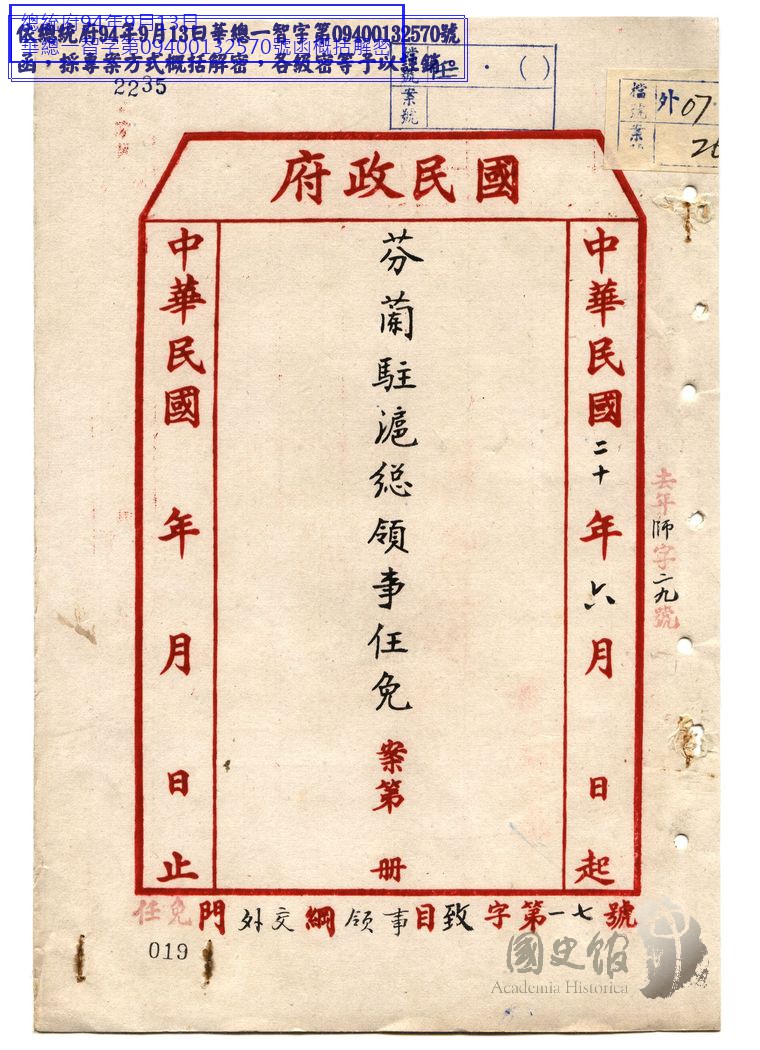 總統府94年9月13日
華總一智字第09400132570號函概括解密
依總統府94年9月13日華總一智字第09400132570號
函，採專案方式概括解密，各級密等予以註銷。
2235
檔號
案號
( )
檔號
外07
案
國民政府
中華民國二十年六月 日起
芬蘭駐滬総領事任免案第 册
中華民國 年 月 日止
去年師字二九號
任免門外交綱領事目致字第一七號
019
國史館
Academia Historica